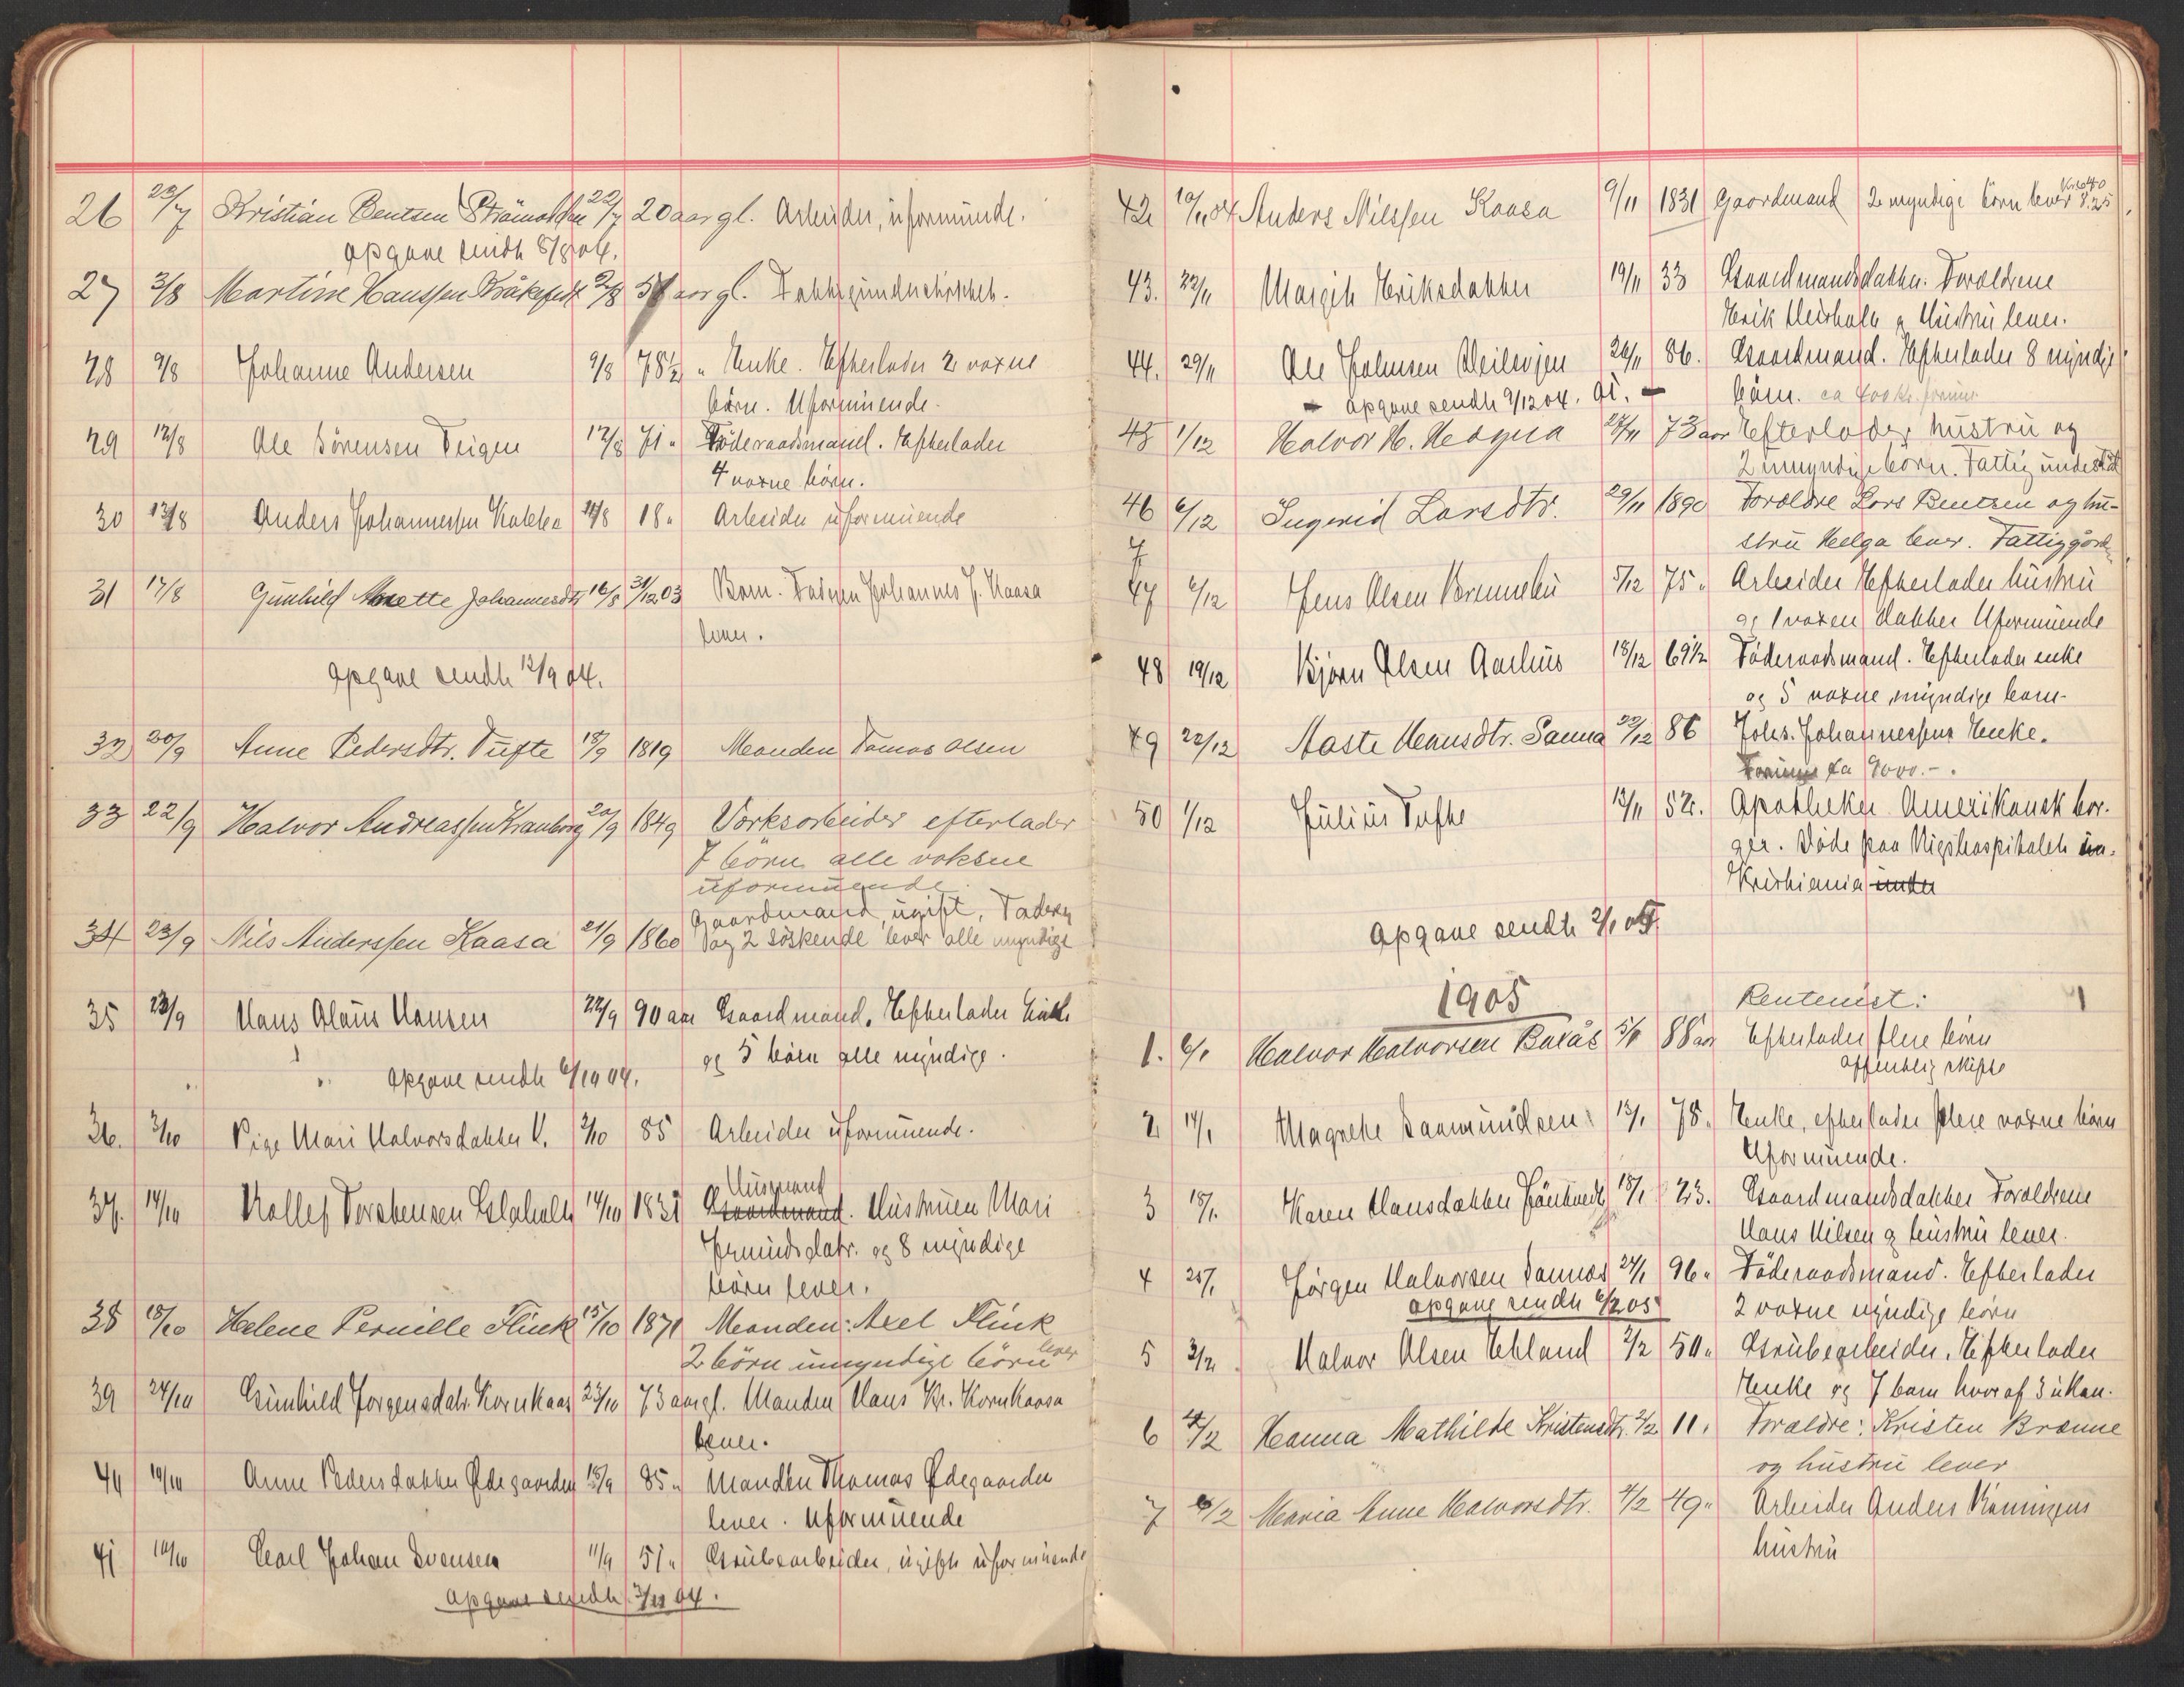 26 23/7 Kristian Bentsen Strömodden 22/7 20 aar gl. Arbeider, uformuende.
Opgave sendt 5/8 04.
27 3/8 Martine Hanssen 2/8 aar gl. Fattigunderstöttet.
28 9/8 Johanne Andersen 9/8 78½ " Enke. Efterlader 2 voxne
börn. Uformuende.
29 12/8 Ole Sörensen Teigen 12/8 71 " Föderaadsmand. Efterlader
4 voxne börn.
30 13/8 Anders Johannessen 18 " Arbeider uformuende
31 17/8 Gunhild Anette Johannesdtr 16/8 31/12 03 Barn. Faderen Johannes J. Kaasa
lever.
Opgave sendt 12/9 04.
32 20/9 Anne Pedersdtr. Tufte 18/9 1819 Manden Tomas Olsen
33 22/9 Halvor Andreassen Kranborg 20/9 1849 Værksarbeider efterlader
7 börn alle voksne
uformuende.
34 23/9 Nils Anderssen Kaasa 21/9 1860 Gaardmand, ugift, Faderen
og 2 söskende lever alle myndige
35 23/9 Hans Olaus Hansen 22/9 90 aar Gaardmand. Efterlader Enke
og 5 börn alle myndige.
" " Opgave sendt 6/10 04.
36. 3/10 Pige Mari Halvorsdatter V. 2/10 85 Arbeider uformuende.
37. 14/10 Kollef Torstensen 14/10 1831 Husmand
Gaardmand. Hustruen Mari
Jermundsdatr. og 8 myndige
börn lever.
38 18/10 Helene Pernille Flink 15/10 1871 Manden: Axel Flink
2 börn umyndige börn lever
39 24/10 Gunhild Jorgensdatr. Kornkaas 23/10 73 aar gl. Manden Hans Kr. Kornkaasa
lever.
40 10/10 Anne Pedersdatter Ödegaarden 18/9 85 " Manden Thomas Ödegaarden
lever. Uformuende
41 10/10 Carl Johan Svensen 11/9 51 " Grubearbeider, ugift uformuende
Opgave sendt 3/11 04.
42 10/11 04 Anders Nilssen Kaasa 9/11 1831 Gaardmand 2 myndige börn lever
43. 22/11 Margit Eriksdatter 19/11 33 Gaardmandsdatter. Foræældrene
Erik og Hustru lever.
44. 29/11 Ole Johnsen 26/11 86. Gaardmand. Efterlader 8 myndige
börn. ca 400 kr. formue
Opgave sendt 2/12 04.
45 1/12 Halvor H. 27/11 73 aar Efterlader hustru og
2 umyndige börn. Fattig understöt
46 6/12 Ingerid Larsdtr. 29/11 1890 Foræældre Lars Bentzen og hu-
stru Helga lever. Fattiggård
47 6/12 Jens Olsen Brennebu 5/12 75 " Arbeider Efterlader hustru
og 1 voxen datter Uformuende
48 19/12 Björn Olsen Aarhus 18/12 69½ Föderaadsmand. Efterlader enke
og 5 voxne myndige barn.
49 22/12 Aaste Hansdtr. Sanna 22/12 86 Johs. Johannessens Enke.
Formue ca 9000.-.
50 1/12 Julius Tufte 13/11 52. Apotheker Amerikansk bor-
ger. Döde paa Rigshospitalet
Kristiania under
Opgave sendt 2/1 05
1905
1. 6/1 Halvor Halvorsen Bakås 5/1 88 aar Rentenist:
Efterlader flere börn
offentlig skifte
2 14/1 Magrete Saamundsen 13/1 78 " Enke, efterlader flere voxne börn
Uformuende.
3 18/1 Karen Hansdatter 18/1 23. Gaardmandsdatter Foræældrene
Hans Nilsen og hustru lever.
4 25/1 Jörgen Halvorsen Sannes 24/1 96 " Föderaadsmand. Efterlader
2 voxne myndige börn
Opgave sendt 6/2 05
5 3/2 Halvor Olsen Ekland 2/2 50 " Grubearbeider. Efterlader
Enke og 7 barn hvoraf 3 
6 4/2 Hanna Mathilde Kristensdtr. 2/2 11 " Foræældre: Kristen Brænne
og hustru lever
7 6/2 Maria Anne Halvorsdtr. 4/2 49 " Arbeider Anders
hustru